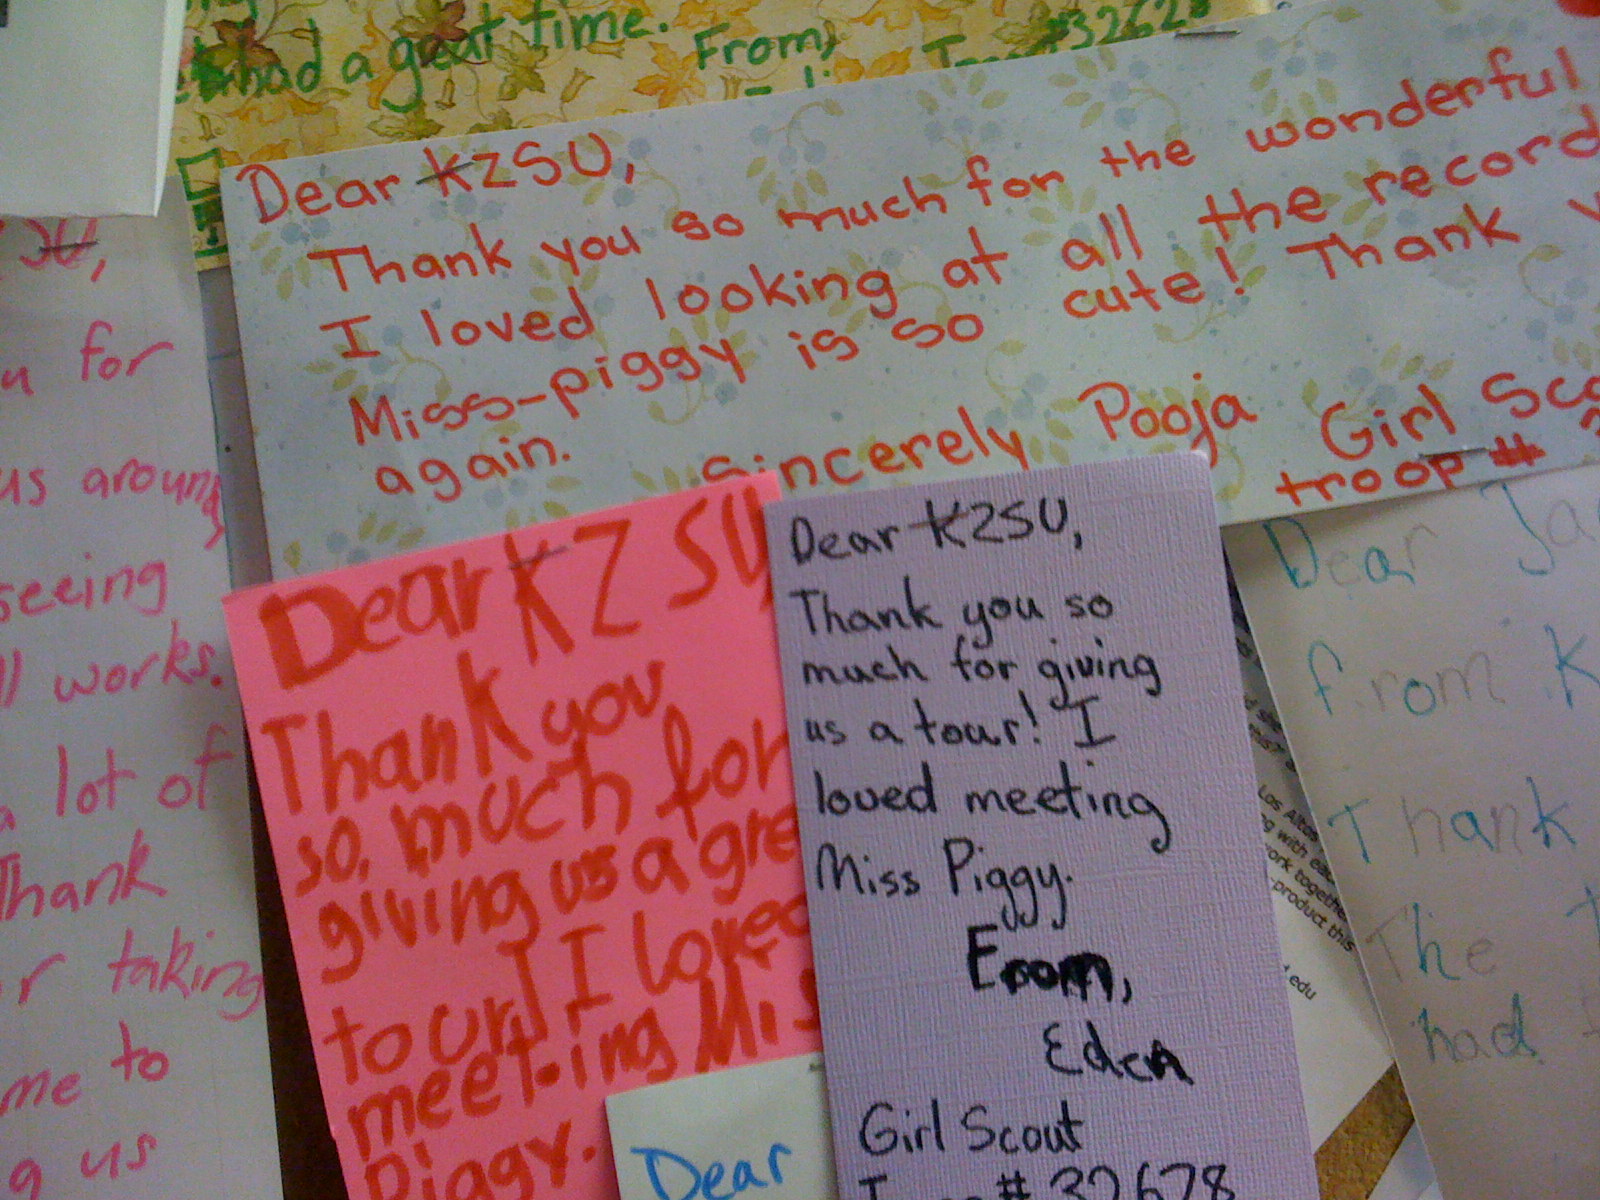 had a great time.
From,
#32628
Dear KZSU,
Thank you so much for the wonderful
I loved looking at all the record
Miss-piggy is so cute! Thank
again.
Sincerely Pooja Girl Sco
troop #
u for
us around
seeing
works.
lot of
Thank
taking
me to
us
Dear KZSU,
Thank you
so much for
giving us a gre
tour! I loved
meeting Mis
Piggy.
Dear KZSU,
Thank you so
much for giving
us a tour! I
loved meeting
Miss Piggy.
From,
Eden
Girl Scout
#32628
Dear
Dear Ja
from K
Thank
The
had
Los Altos
ng with
ork together
-product this
edu